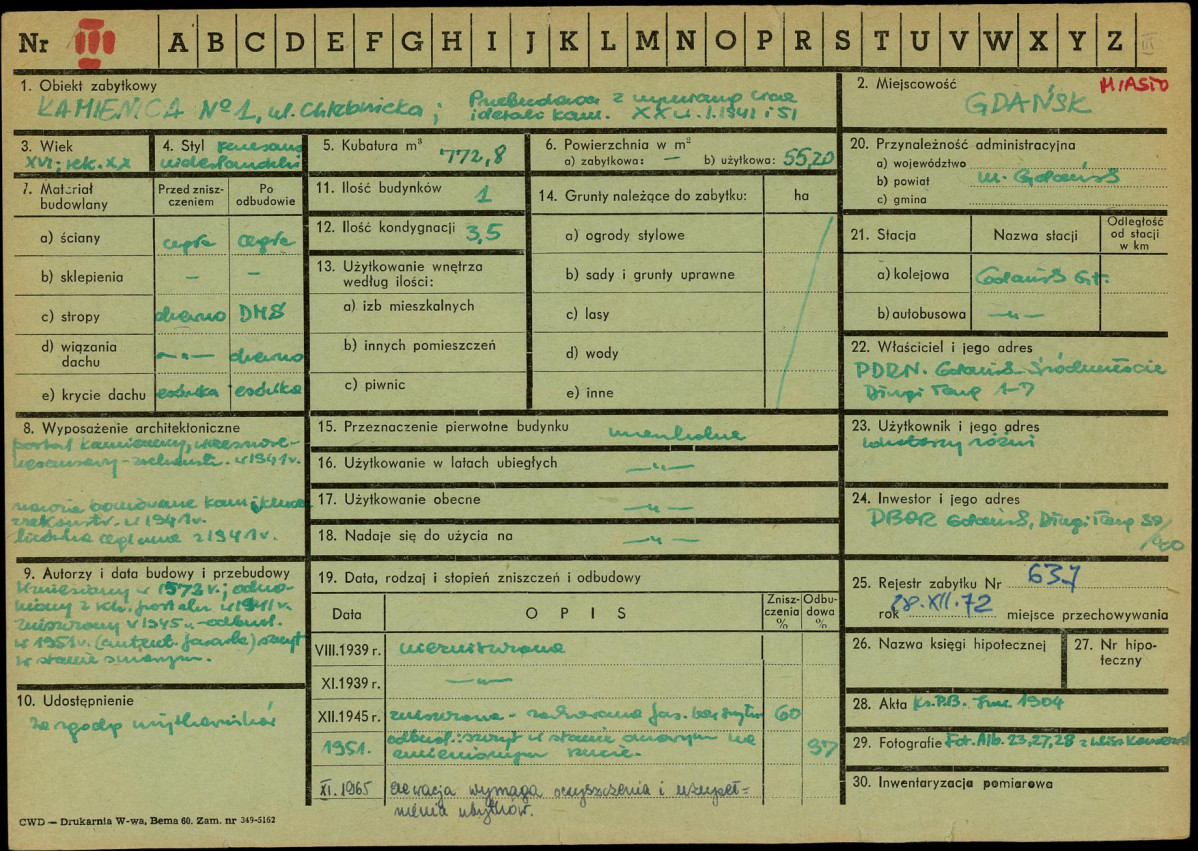 Nr III A B C D E F G H I J K L M N O P R S T U V W X Y Z III
1. Obiekt zabytkowy
KAMIENICA Nº 1, ul. Chlebnicka; Przebudowa z
kam. XX w. i. 1941 i 51
2. Miejscowość MIASTO
GDAŃSK
3. Wiek
XVI; rek. XX
4. Styl renesans
niderlandzki
5. Kubatura m³ 772,8
6. Powierzchnia w m²
a) zabytkowa: — b) użytkowa: 55,20
7. Materiał budowlany
Przed zniszczeniem
Po odbudowie
a) ściany cegła cegła
b) sklepienia – –
c) stropy drewno DMS
d) wiązania dachu —„— drewno
e) krycie dachu esówka esówka
8. Wyposażenie architektoniczne
portal kamienny, wczesnore-
nesansowy - zrekonstr. w 1941 r.
zrekonstr. w 1941 r.
ceglana z 1941 r.
9. Autorzy i data budowy i przebudowy
Wzniesiony w 1573 r.; odno-
wiony z portalu w 1941 r.
zniszczony w 1945 r. - odbud.
w 1951 r. (autent. fasada) szczyt
w stanie surowym.
10. Udostępnienie
za zgodą użytkowników
11. Ilość budynków 1
12. Ilość kondygnacji 3,5
13. Użytkowanie wnętrza
według ilości:
a) izb mieszkalnych
b) innych pomieszczeń
c) piwnic
14. Grunty należące do zabytku: ha
a) ogrody stylowe
b) sady i grunty uprawne
c) lasy
d) wody
e) inne
15. Przeznaczenie pierwotne budynku mieszkalne
16. Użytkowanie w latach ubiegłych —„—
17. Użytkowanie obecne —„—
18. Nadaje się do użycia na —„—
19. Data, rodzaj i stopień zniszczeń i odbudowy
Data OPIS Zniszczenia % Odbudowa %
VIII.1939 r. niezniszczona
XI.1939 r. —„—
XII.1945 r. zniszczona - zachowana fas. bez szczytu 60
1951. odbud.: szczyt w stanie surowym na
zmienionym rzucie. 97
XI.1965 elewacja wymaga oczyszczenia i uzupeł=
nienia ubytków.
20. Przynależność administracyjna
a) województwo
b) powiat m. Gdańsk
c) gmina
21. Stacja Nazwa stacji Odległość od stacji w km
a) kolejowa Gdańsk Gł.
b) autobusowa —„—
22. Właściciel i jego adres
PDRN. Gdańsk-Śródmieście
Długi Targ 1-7
23. Użytkownik i jego adres
lokatorzy różni
24. Inwestor i jego adres
DBOR Gdańsk, Długi Targ 39/
/40
25. Rejestr zabytku Nr 637
rok 28.XII.72 miejsce przechowywania
26. Nazwa księgi hipotecznej
27. Nr hipoteczny
28. Akta Ks.P.B. 1904
29. Fotografie Fot. Alb. 23,27,28
30. Inwentaryzacja pomiarowa
CWD — Drukarnia W-wa, Bema 60. Zam. nr 349-5162